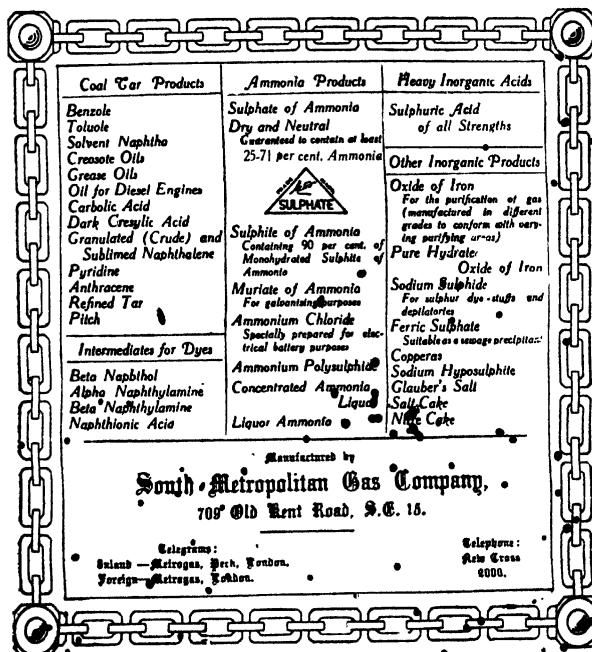 Coal Tar Products
Benzole
Toluole
Solvent Naphtha
Creosote Oils
Grease Oils
Oil for Diesel Engines
Carbolic Acid
Dark Cresylic Acid
Granulated (Crude) and
Sublimed Naphthalene
Pyridine
Anthracene
Refined Tar
Pitch
Intermediates for Dyes
Beta Naphthol
Alpha Naphthylamine
Beta Naphthylamine
Naphthionic Acid
Ammonia Products
Sulphate of Ammonia
Dry and Neutral
Guaranteed to contain at least
25-71 per cent. Ammonia
SULPHATE
Sulphite of Ammonia
Containing 90 per cent. of
Monohydrated Sulphite of
Ammonia
Muriate of Ammonia
For galvanising purposes
Ammonium Chloride
Specially prepared for elec-
trical battery purposes
Ammonium Polysulphide
Concentrated Ammonia
Liquor
Liquor Ammonia
Heavy Inorganic Acids
Sulphuric Acid
of all Strengths
Other Inorganic Products
Oxide of Iron
For the purification of gas
(manufactured in different
grades to conform with vary-
ing purifying areas)
Pure Hydrate
Oxide of Iron
Sodium Sulphide
For sulphur dye-stuffs and
depilatories
Ferric Sulphate
Suitable as a sewage precipitant
Copperas
Sodium Hyposulphite
Glauber's Salt
Salt Cake
Nitre Cake
Manufactured by
South Metropolitan Gas Company,
709 Old Kent Road, S.E. 15.
Telegrams:
Inland—Metrogas, Peck, London.
Foreign—Metrogas, London.
Telephone:
New Cross
2000.